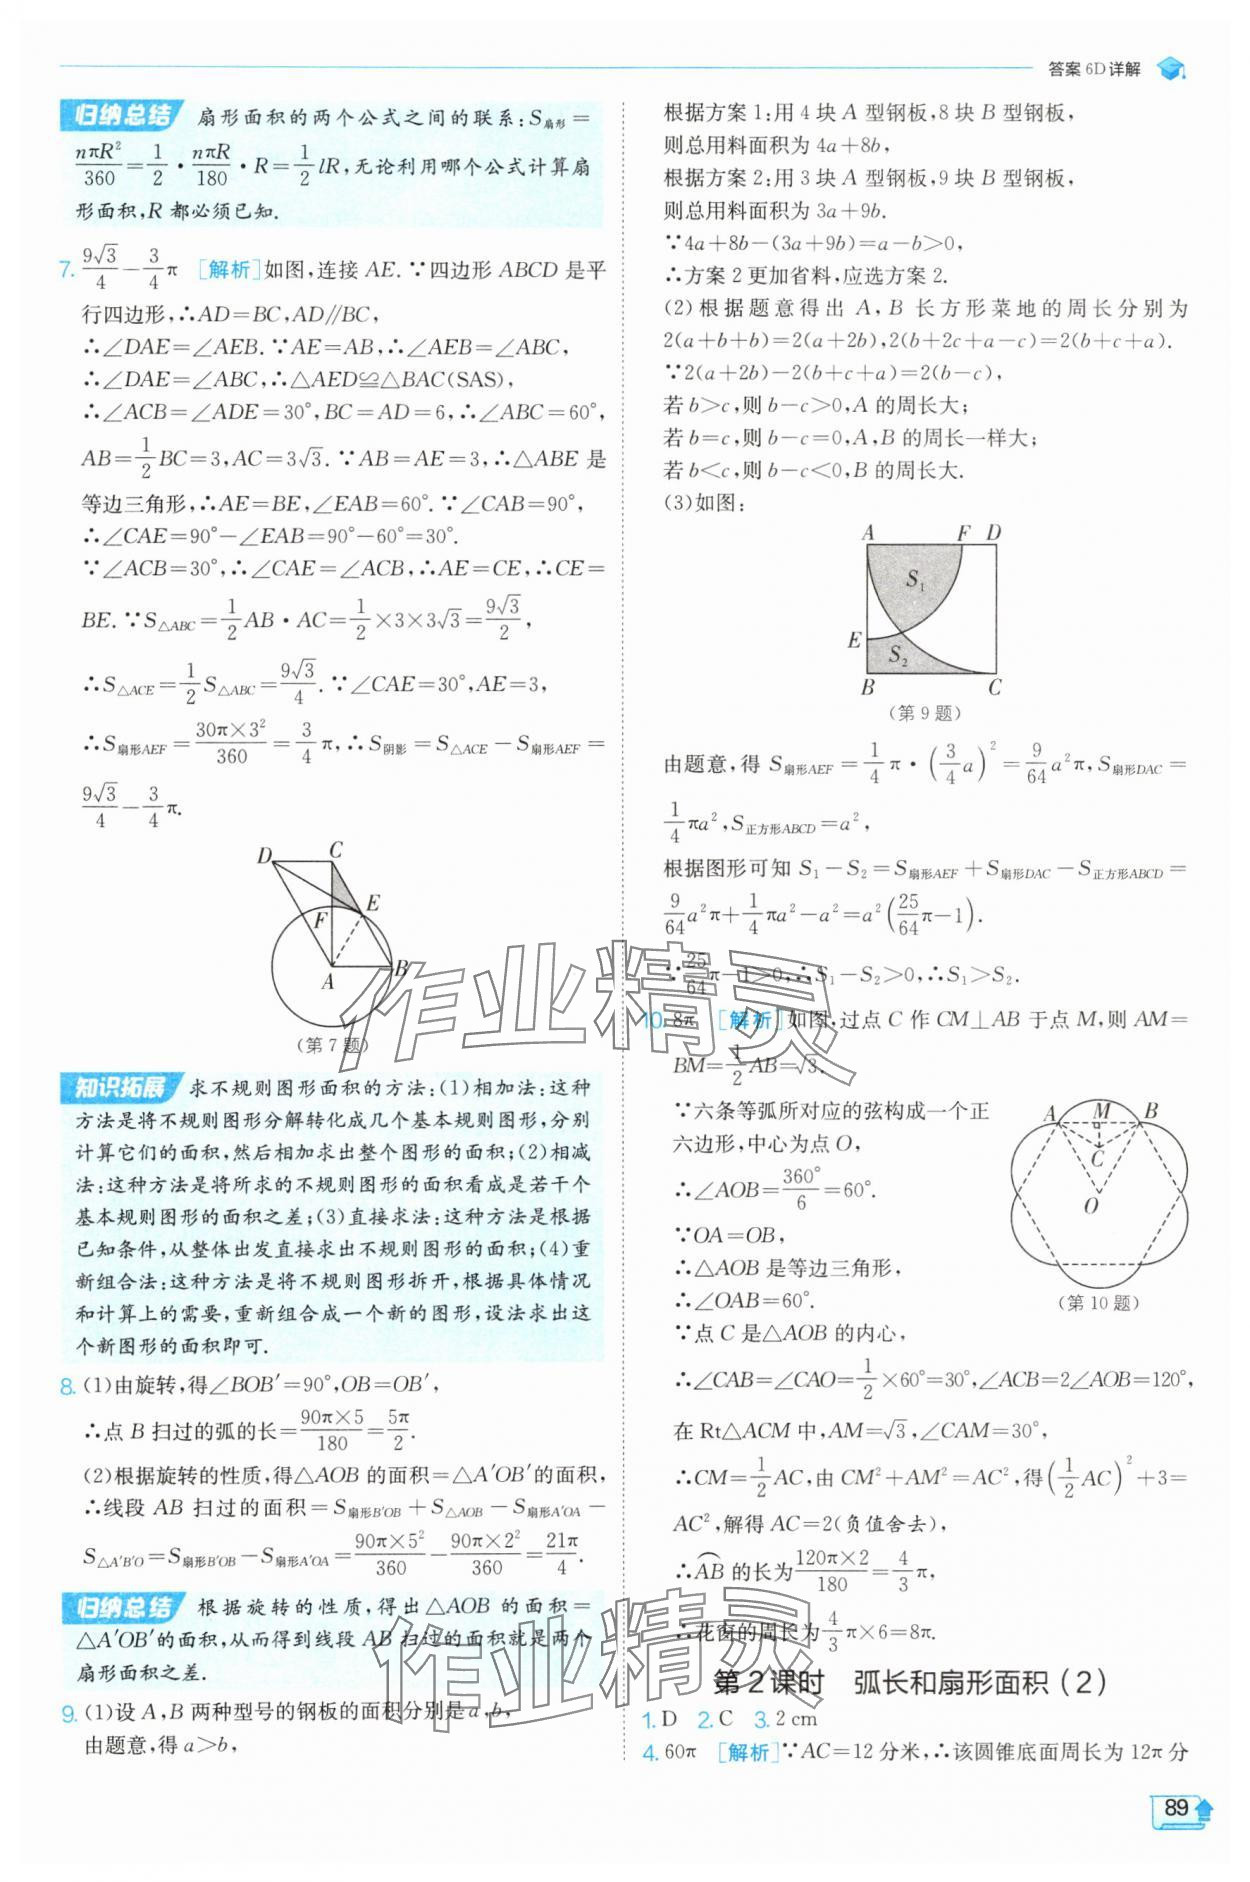 答案 6D详解
归纳总结 扇形面积的两个公式之间的联系:S扇形=
nπR²/360=1/2·nπR/180·R=1/2 lR,无论利用哪个公式计算扇
形面积,R 都必须已知.
7. 9√3/4-3/4π [解析]如图,连接 AE.∵四边形 ABCD 是平
行四边形,∴AD=BC,AD∥BC,
∴∠DAE=∠AEB.∵AE=AB,∴∠AEB=∠ABC,
∴∠DAE=∠ABC,∴△AED≌△BAC(SAS),
∴∠ACB=∠ADE=30°,BC=AD=6,∴∠ABC=60°,
AB=1/2BC=3,AC=3√3.∵AB=AE=3,∴△ABE 是
等边三角形,∴AE=BE,∠EAB=60°.∵∠CAB=90°,
∴∠CAE=90°-∠EAB=90°-60°=30°.
∵∠ACB=30°,∴∠CAE=∠ACB,∴AE=CE,∴CE=
BE.∵S△ABC=1/2AB·AC=1/2×3×3√3=9√3/2,
∴S△ACE=1/2S△ABC=9√3/4.∵∠CAE=30°,AE=3,
∴S扇形AEF=30π×3²/360=3/4π,∴S阴影=S△ACE-S扇形AEF=
9√3/4-3/4π.
D C
F E
A B
(第 7 题)
知识拓展 求不规则图形面积的方法:(1)相加法:这种
方法是将不规则图形分解转化成几个基本规则图形,分别
计算它们的面积,然后相加求出整个图形的面积;(2)相减
法:这种方法是将所求的不规则图形的面积看成是若干个
基本规则图形的面积之差;(3)直接求法:这种方法是根据
已知条件,从整体出发直接求出不规则图形的面积;(4)重
新组合法:这种方法是将不规则图形拆开,根据具体情况
和计算上的需要,重新组合成一个新的图形,设法求出这
个新图形的面积即可.
8. (1)由旋转,得∠BOB′=90°,OB=OB′,
∴点 B 扫过的弧的长=90π×5/180=5π/2.
(2)根据旋转的性质,得△AOB 的面积=△A′OB′的面积,
∴线段 AB 扫过的面积=S扇形B′OB+S△AOB-S扇形A′OA-
S△A′B′O=S扇形B′OB-S扇形A′OA=90π×5²/360-90π×2²/360=21π/4.
归纳总结 根据旋转的性质,得出△AOB 的面积=
△A′OB′的面积,从而得到线段 AB 扫过的面积就是两个
扇形面积之差.
9. (1)设 A,B 两种型号的钢板的面积分别是a,b,
由题意,得 a>b,
根据方案 1:用 4 块 A 型钢板,8 块 B 型钢板,
则总用料面积为 4a+8b,
根据方案 2:用 3 块 A 型钢板,9 块 B 型钢板,
则总用料面积为 3a+9b.
∵4a+8b-(3a+9b)=a-b>0,
∴方案 2 更加省料,应选方案 2.
(2)根据题意得出 A,B 长方形菜地的周长分别为
2(a+b+b)=2(a+2b),2(b+2c+a-c)=2(b+c+a).
∵2(a+2b)-2(b+c+a)=2(b-c),
若 b>c,则 b-c>0,A 的周长大;
若 b=c,则 b-c=0,A,B 的周长一样大;
若 b<c,则 b-c<0,B 的周长大.
(3)如图:
A F D
S₁
E S₂
B C
(第 9 题)
由题意,得 S扇形AEF=1/4π·(3/4a)²=9/64a²π,S扇形DAC=
1/4πa²,S正方形ABCD=a²,
根据图形可知 S₁-S₂=S扇形AEF+S扇形DAC-S正方形ABCD=
9/64a²π+1/4πa²-a²=a²(25/64π-1).
∵25/64π-1>0,∴S₁-S₂>0,∴S₁>S₂.
10. 8π [解析]如图,过点 C 作 CM⊥AB 于点 M,则 AM=
BM=1/2AB=√3.
∵六条等弧所对应的弦构成一个正
六边形,中心为点 O,
∴∠AOB=360°/6=60°.
∵OA=OB,
∴△AOB 是等边三角形,
∴∠OAB=60°.
A M B
C
O
(第 10 题)
∵点 C 是△AOB 的内心,
∴∠CAB=∠CAO=1/2×60°=30°,∠ACB=2∠AOB=120°,
在 Rt△ACM 中,AM=√3,∠CAM=30°,
∴CM=1/2AC,由 CM²+AM²=AC²,得(1/2AC)²+3=
AC²,解得 AC=2(负值舍去),
∴AB⌒的长为120π×2/180=4/3π,
∴花窗的周长为4/3π×6=8π.
第 2 课时 弧长和扇形面积(2)
1. D 2. C 3. 2 cm
4. 60π [解析]∵AC=12 分米,∴该圆锥底面周长为 12π 分
89
作业精灵
作业精灵